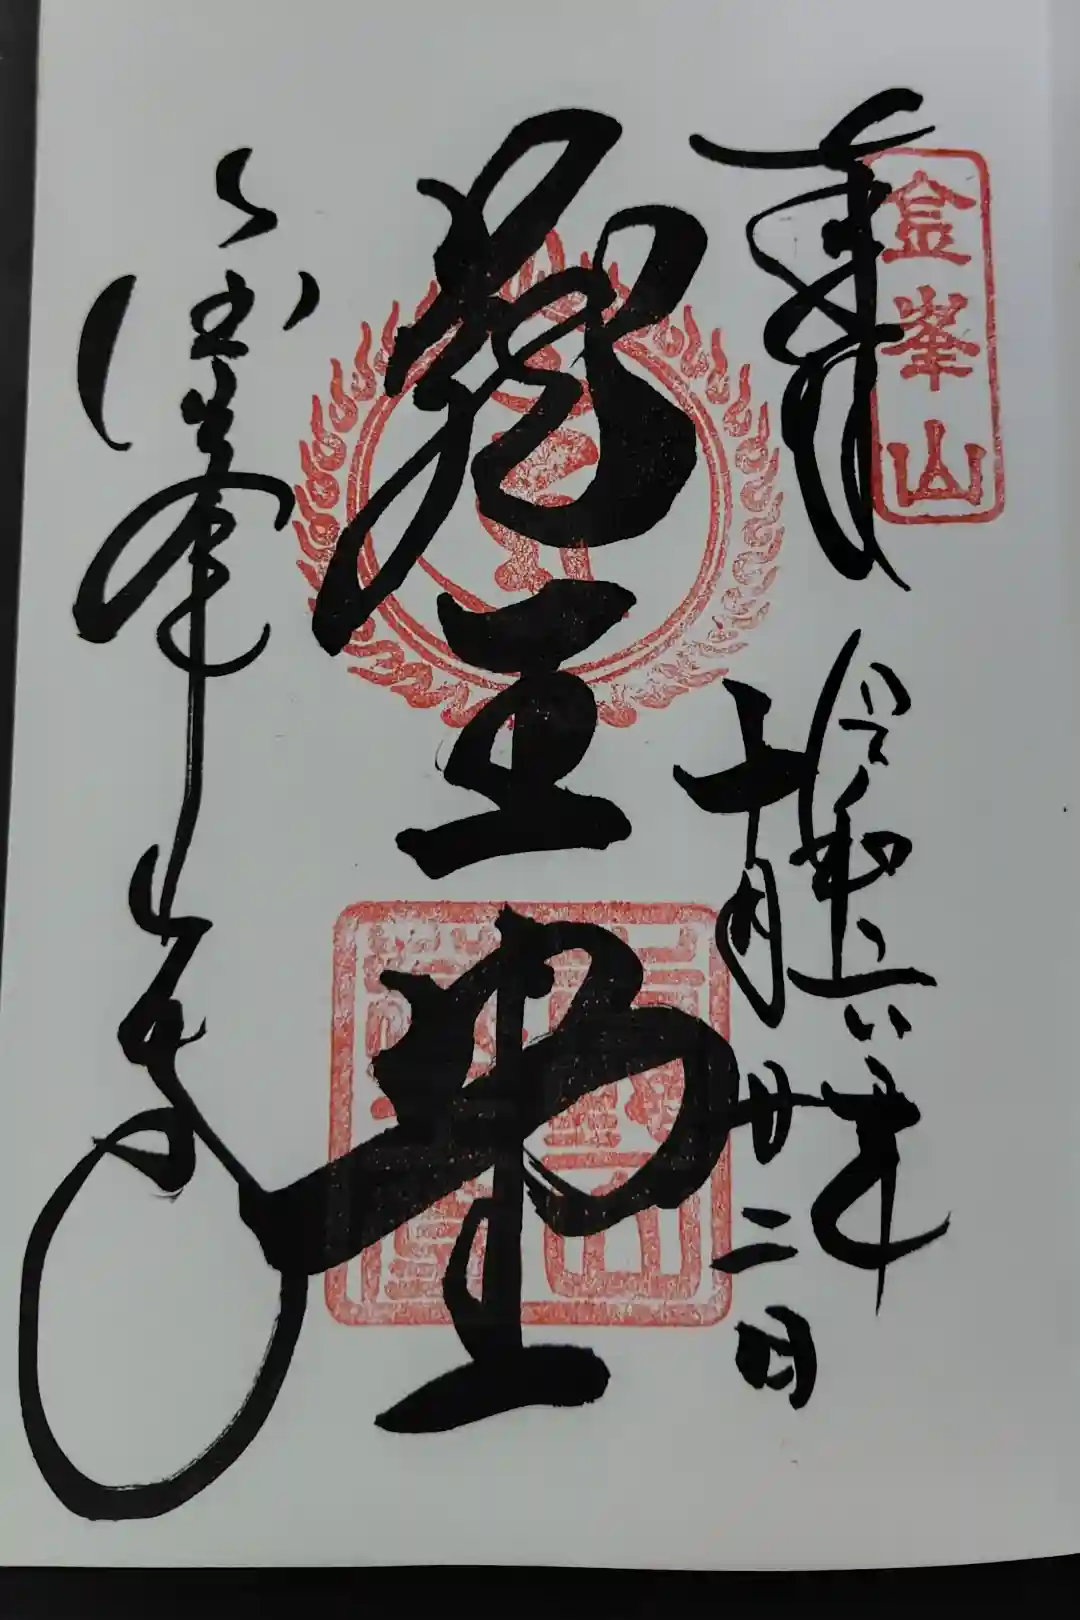 奉拝
金峯山
令和六年
十月廿二日
蔵王堂
金峯山寺